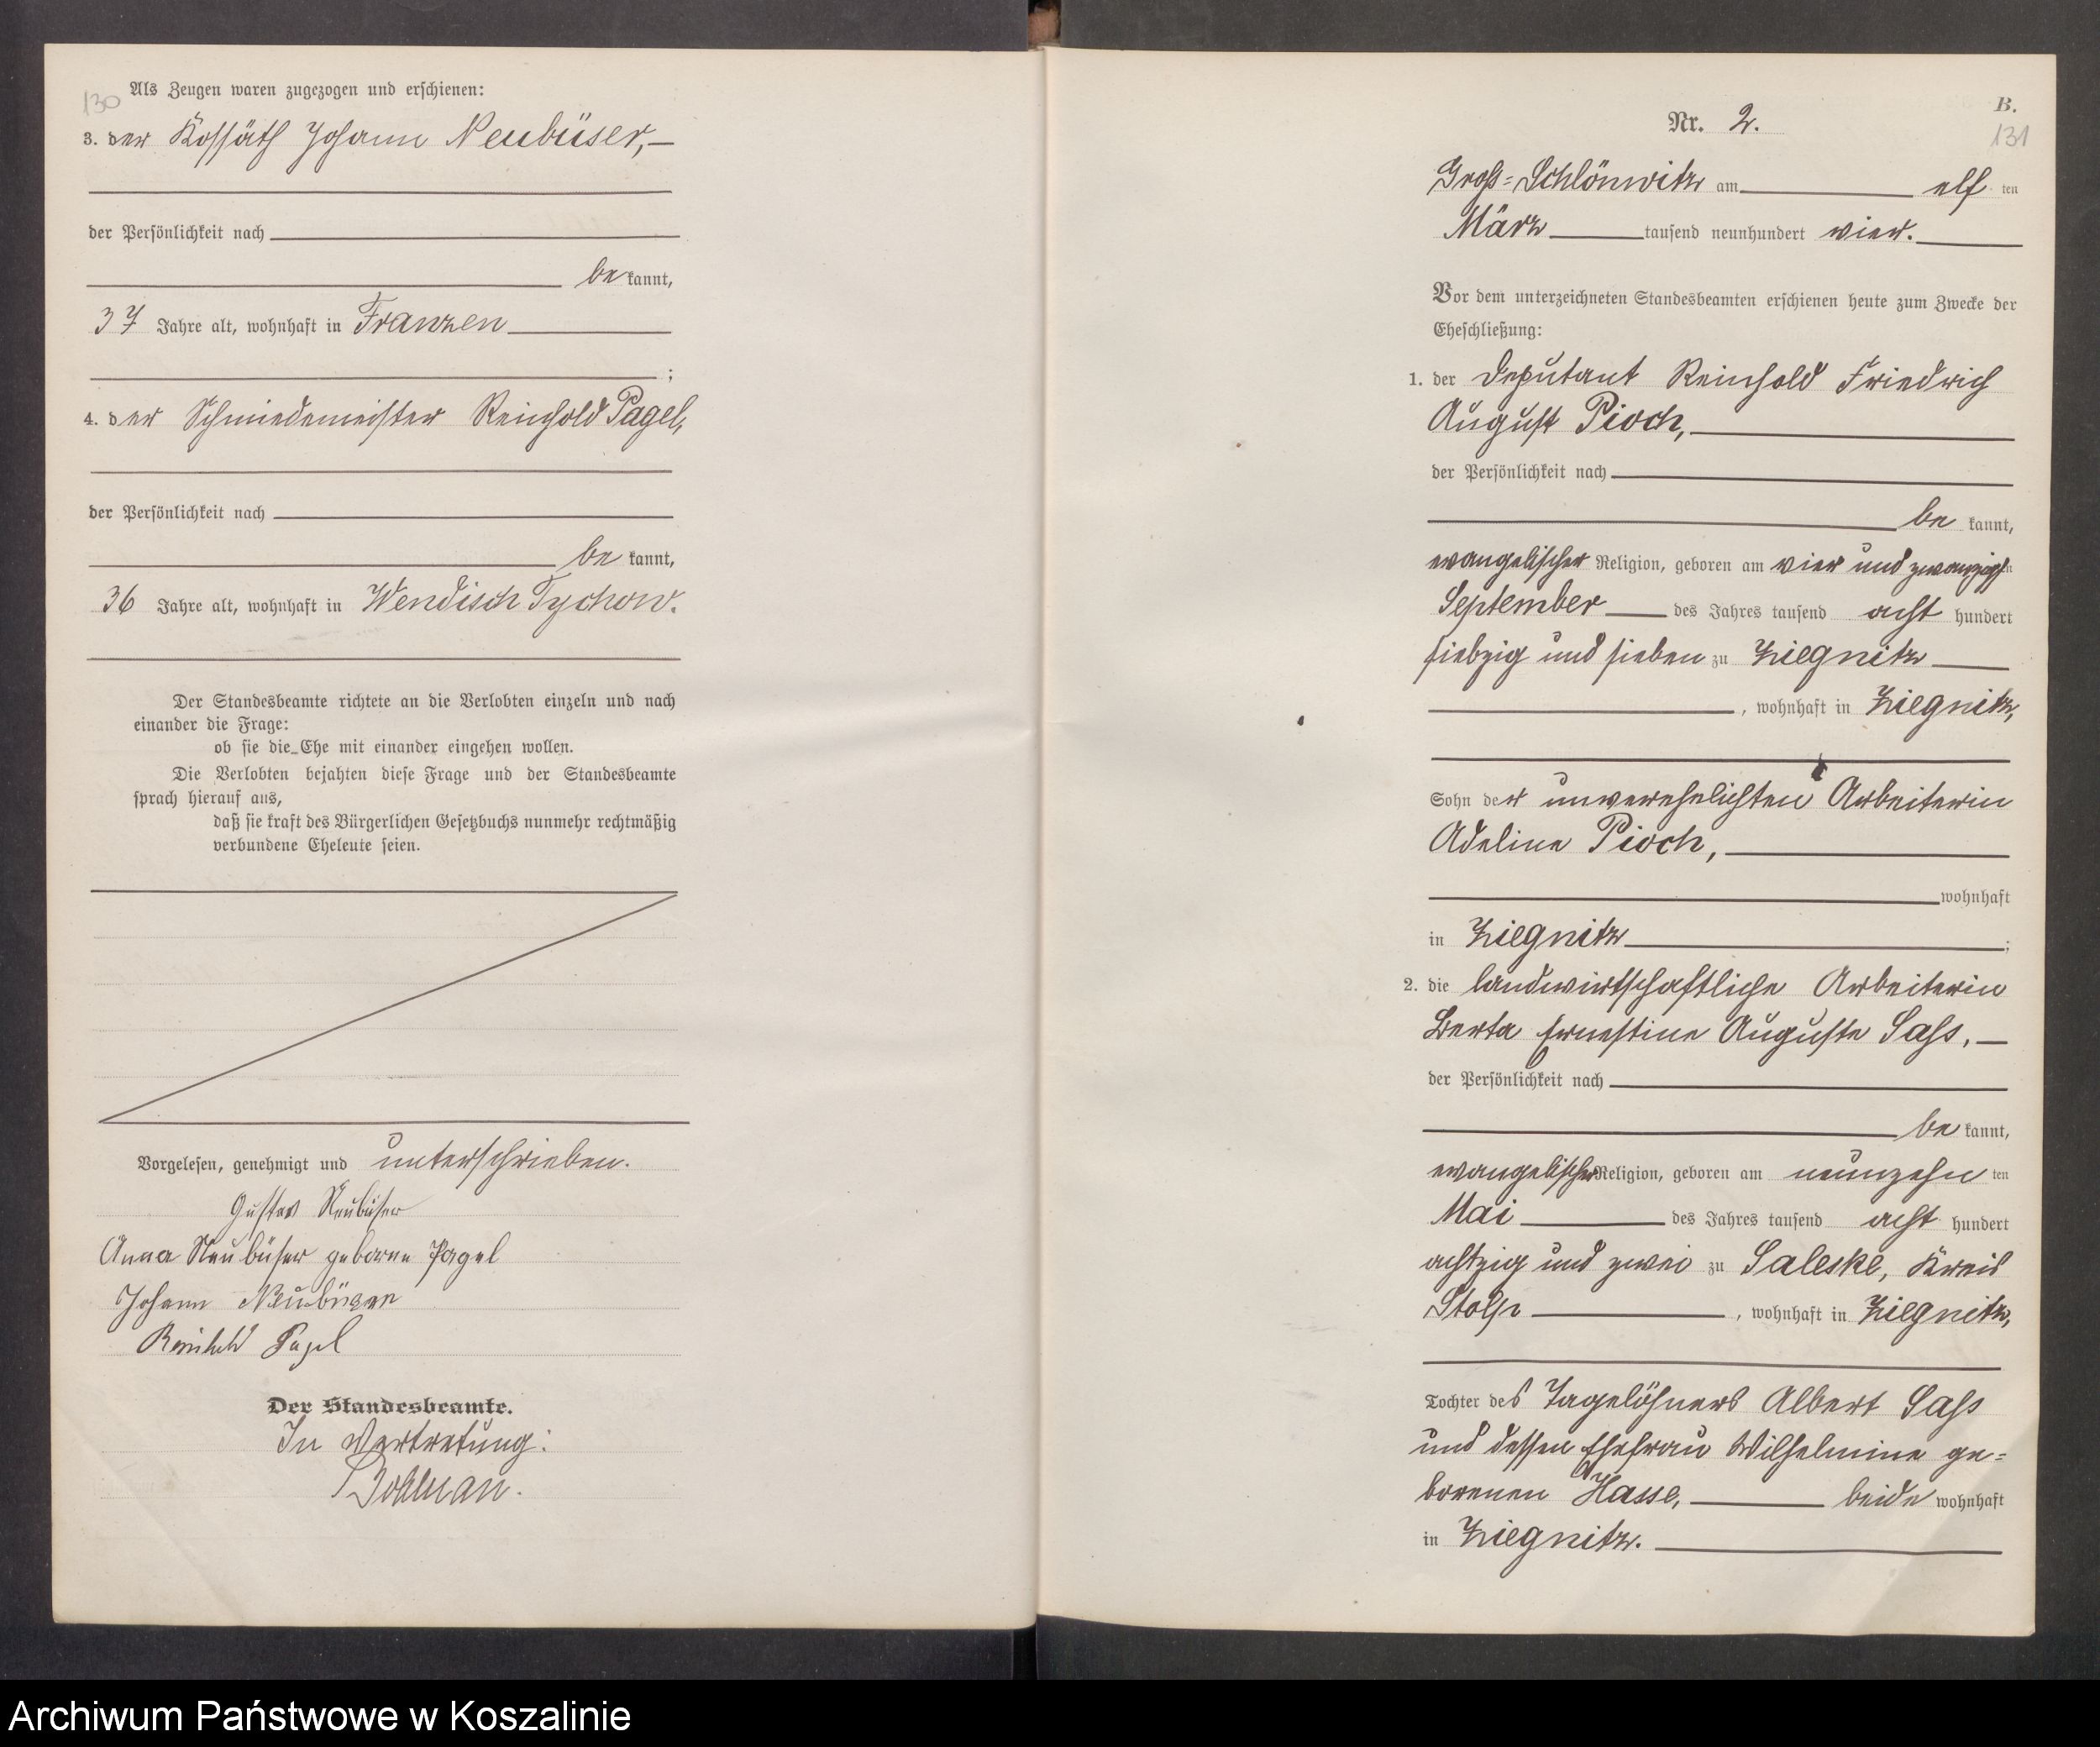 130
Als Zeugen waren zugezogen und erschienen:
3. der Kossäth Johann Neubüser,
der Persönlichkeit nach
be kannt,
37 Jahre alt, wohnhaft in Franzen
;
4. der Schmiedemeister Reinhold Pagel,
der Persönlichkeit nach
be kannt,
36 Jahre alt, wohnhaft in Wendisch Tychow.
Der Standesbeamte richtete an die Verlobten einzeln und nach
einander die Frage:
ob sie die Ehe mit einander eingehen wollen.
Die Verlobten bejahten diese Frage und der Standesbeamte
sprach hierauf aus,
daß sie kraft des Bürgerlichen Gesetzbuchs nunmehr rechtmäßig
verbundene Eheleute seien.
Vorgelesen, genehmigt und unterschrieben.
Gustav Neubüser
Anna Neubüser geborne Pagel
Johann Neubüser
Reinhold Pagel
Der Standesbeamte.
In Vertretung:
B.
131
Nr. 2.
Groß-Schlönwitz am elf ten
März tausend neunhundert vier.
Vor dem unterzeichneten Standesbeamten erschienen heute zum Zwecke der
Eheschließung:
1. der Deputant Reinhold Friedrich
August Pioch,
der Persönlichkeit nach
be kannt,
evangelischer Religion, geboren am vier und zwanzigsten
September des Jahres tausend acht hundert
siebzig und sieben zu Ziegnitz
, wohnhaft in Ziegnitz,
Sohn der unverehelichten Arbeiterin
Adeline Pioch,
wohnhaft
in Ziegnitz ;
2. die landwirtschaftliche Arbeiterin
Berta Ernestine Auguste Sass,
der Persönlichkeit nach
be kannt,
evangelischer Religion, geboren am neunzehn ten
Mai des Jahres tausend acht hundert
achtzig und zwei zu Saleske, Kreis
Stolp , wohnhaft in Ziegnitz,
Tochter des Tagelöhners Albert Sass
und dessen Ehefrau Wilhelmine ge=
borenen Hasse, beide wohnhaft
in Ziegnitz.
Archiwum Państwowe w Koszalinie